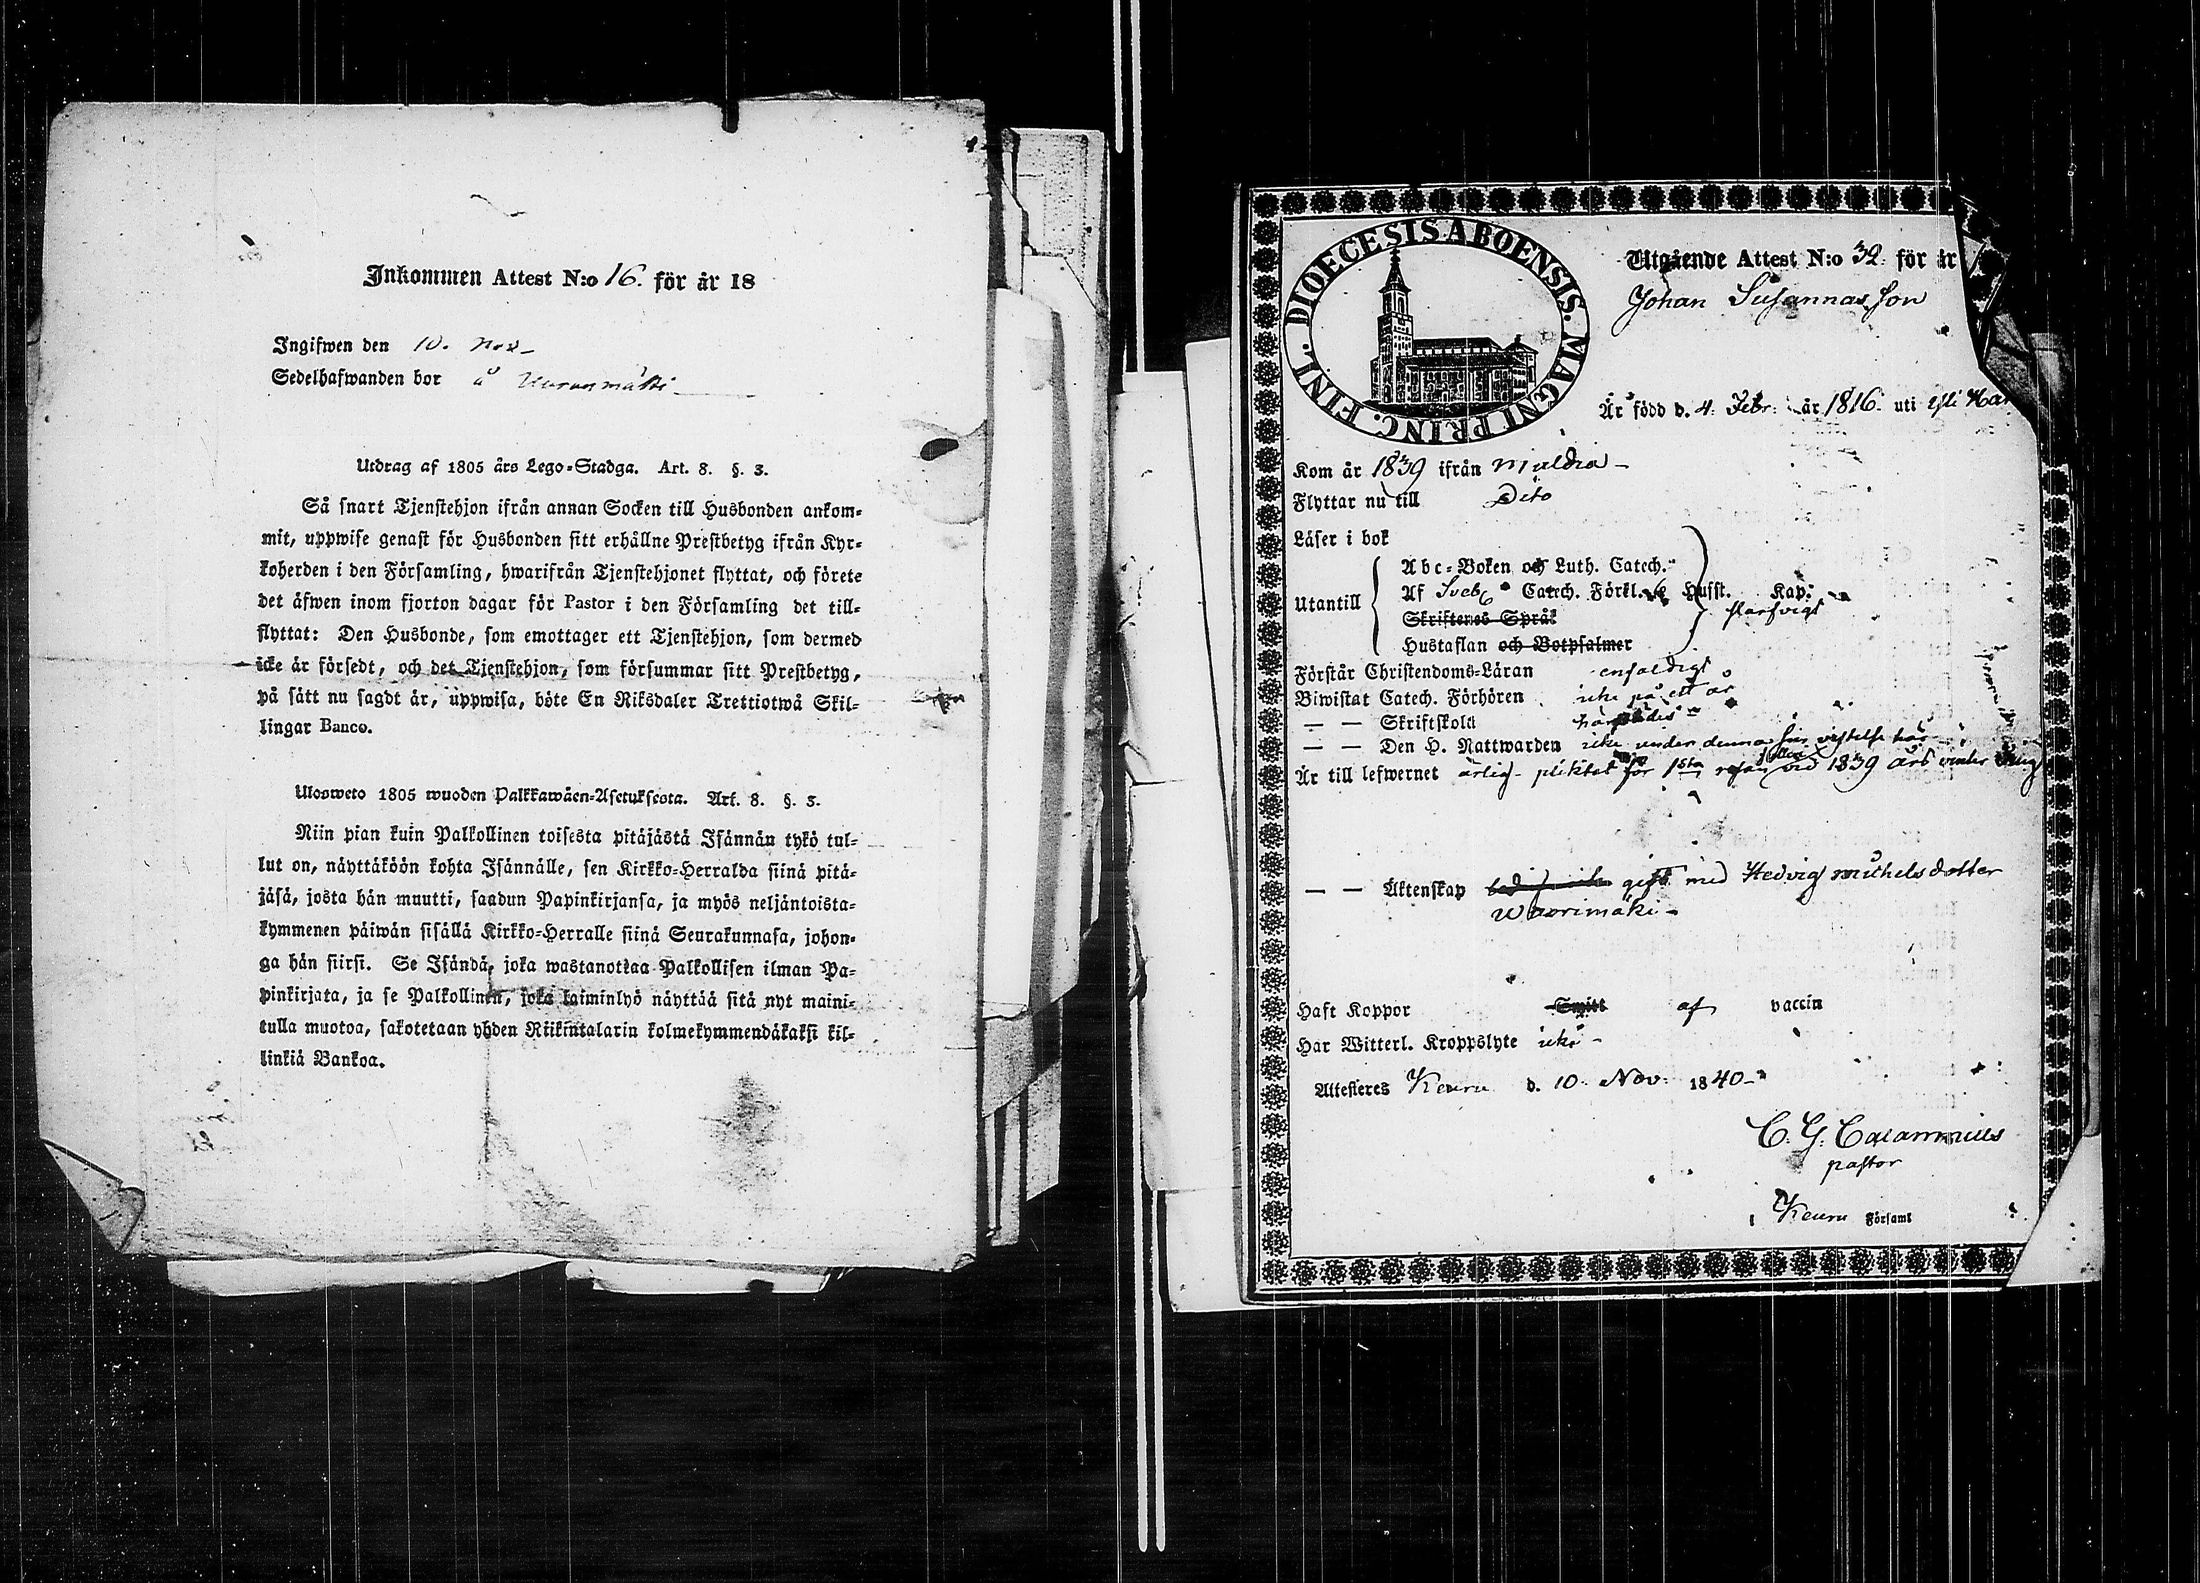 Inkommen Attest N:o 16. för år 18
Ingifwen den 10. Nov
Sedelhafwanden bor å
Utdrag af 1805 års Lego-Stadga. Art. 8. §. 3.
Så snart Tjenstehjon ifrån annan Socken till Husbonden ankom-
mit, uppwise genast för Husbonden sitt erhållne Prestbetyg ifrån Kyr-
koherden i den Församling, hwarifrån Tjenstehjonet flyttat, och förete
det äfwen inom fjorton dagar för Pastor i den Församling det till-
flyttat: Den Husbonde, som emottager ett Tjenstehjon, som dermed
icke är försedt, och det Tjenstehjon, som försummar sitt Prestbetyg,
på sätt nu sagdt är, uppwisa, böte En Riksdaler Trettiotwå Skil-
lingar Banco.
Ulosweto 1805 wuoden Palkkawäen-Asetuksesta. Art. 8. §. 3.
Niin pian kuin Palkollinen toisesta pitäjästä Isännän tykö tul-
lut on, näyttäköön kohta Isännälle, sen Kirkko-Herralda siinä pitä-
jäsä, josta hän muutti, saadun Papinkirjansa, ja myös neljäntoista-
kymmenen päiwän sisällä Kirkko-Herralle siinä Seurakunnasa, johon-
ga hän siirsi. Se Isändä, joka wastanottaa Palkollisen ilman Pa-
pinkirjata, ja se Palkollinen, joka laiminlyö näyttää sitä nyt maini-
tulla muotoa, sakotetaan yhden Riikintalarin kolmekymmendäkaksi kil-
linkiä Bankoa.
DIOECESIS ABOENSIS. MAGNI PRINC. FINL.
Utgående Attest N:o 32. för år
Johan Susannas son
Är född d. 4. Febr: år 1816. uti
Kom år 1839 ifrån Muldia
Flyttar nu till Dito
Läser i bok
Utantill
Abc-Boken och Luth. Catech.
Af Sveb. Catech. Förkl. Husst. Kap:
Skriftenes Språk
Hustaflan och Botpsalmer
Förstår Christendoms-Läran enfaldigt
Biwistat Catech. Förhören icke på ett år
— — Skriftskola
— — Den H. Nattwarden icke under denna sin vistelse här
Är till lefwernet ärlig - pliktat för 1sta resan vid 1839 års vinter
— — Äktenskap gift med Hedvig Michelsdotter
Haft Koppor Smitt af vaccin
Har Witterl. Kroppslyte icke -
Attesteres Keuru d. 10. Nov. 1840 -
C. G. Calamnius
pastor
Keuru Församl